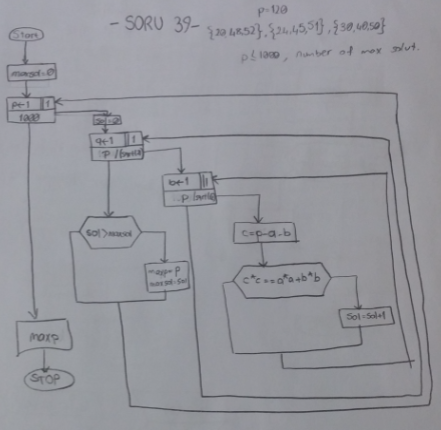 P=120
- SORU 39-
{20,48,52}, {24,45,51}, {30,40,50}
P≤1000, number of max solut.
Start
maxsol=0
P←1 1
1000
sol=0
a←1 1
b←1 1
sol>maxsol
c=p-a-b
maxp=P
maxsol=sol
c*c==a*a+b*b
sol=sol+1
maxp
STOP